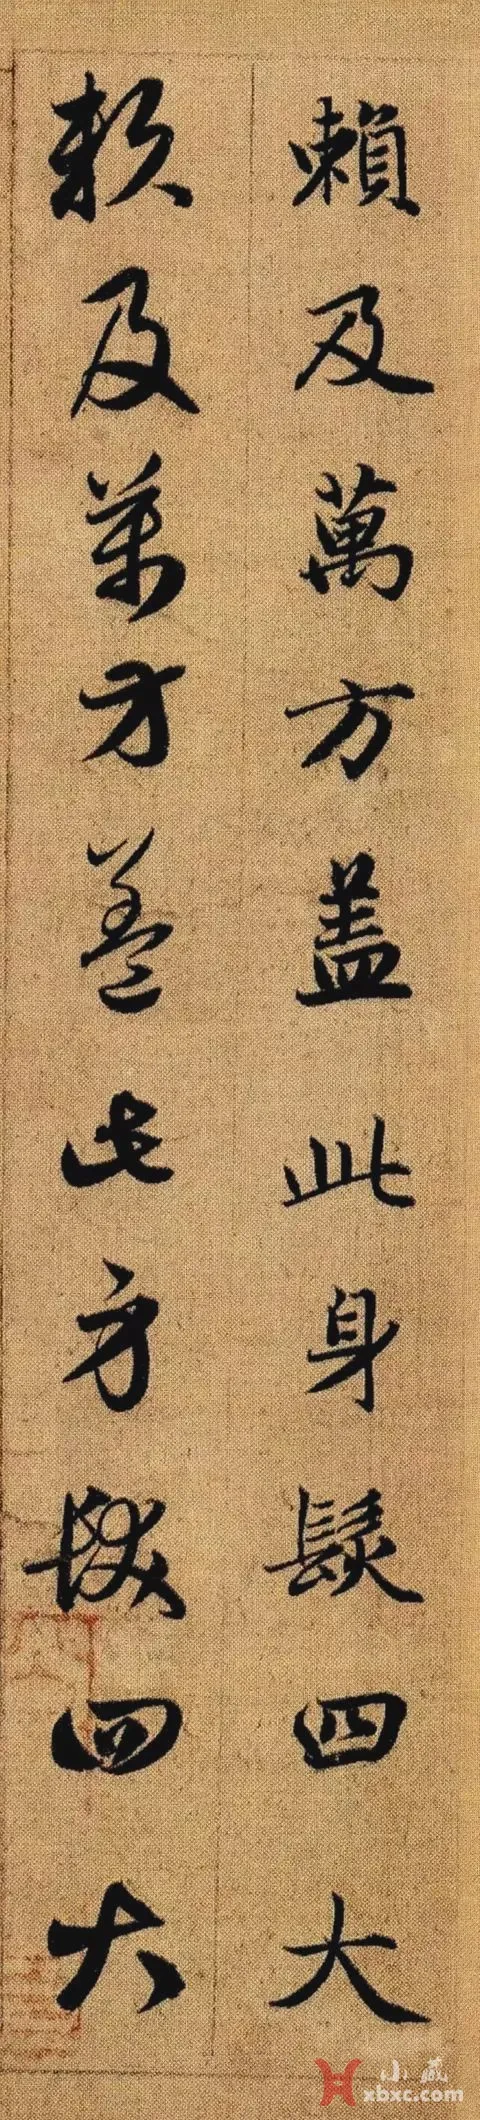 賴及萬方蓋此身髮四大
賴及萬方蓋此身髮四大
小藏
xbxc.com